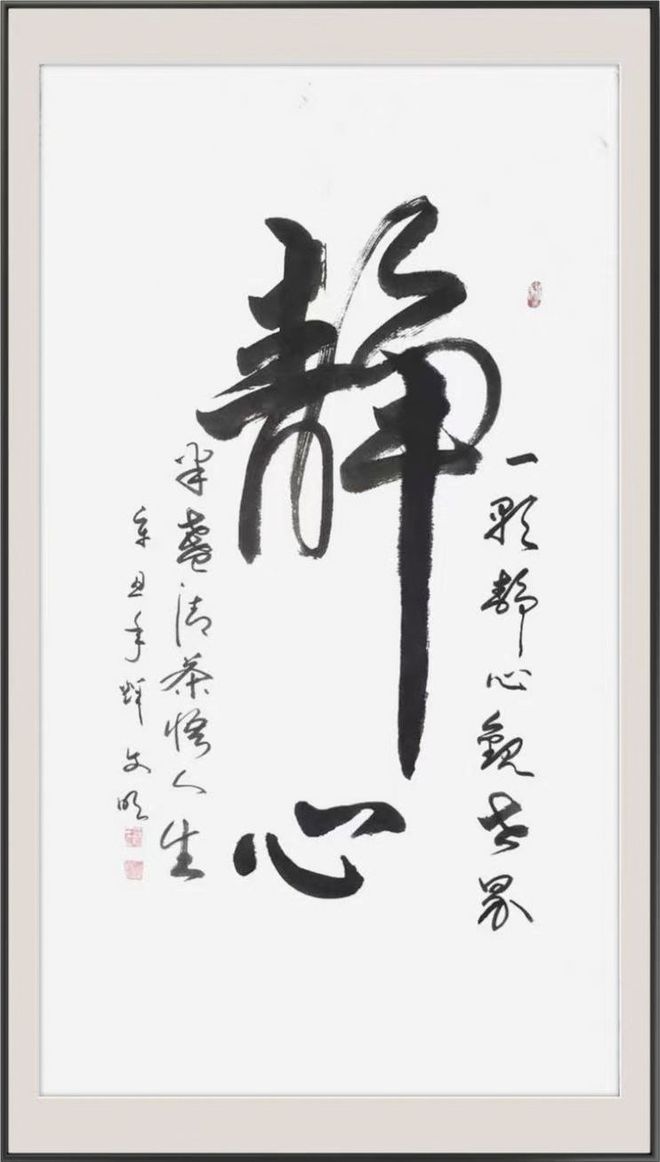 静心
一颗静心观世界
半盏清茶悟人生
辛丑年辉文明